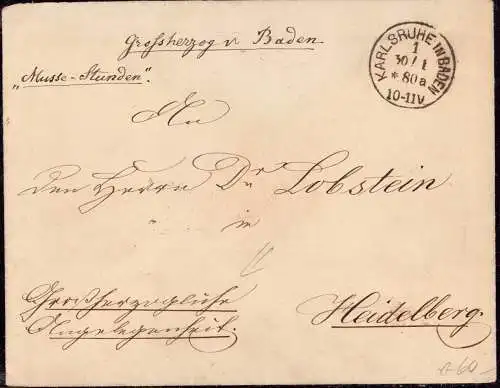 Grossherzog v. Baden.
„Musse-Stunden“.
KARLSRUHE IN BADEN
1
30/1
* 80 a
10-11V
An
den Herrn Dr. Lobstein
in
Großherzogliche
Angelegenheit.
Heidelberg.
60